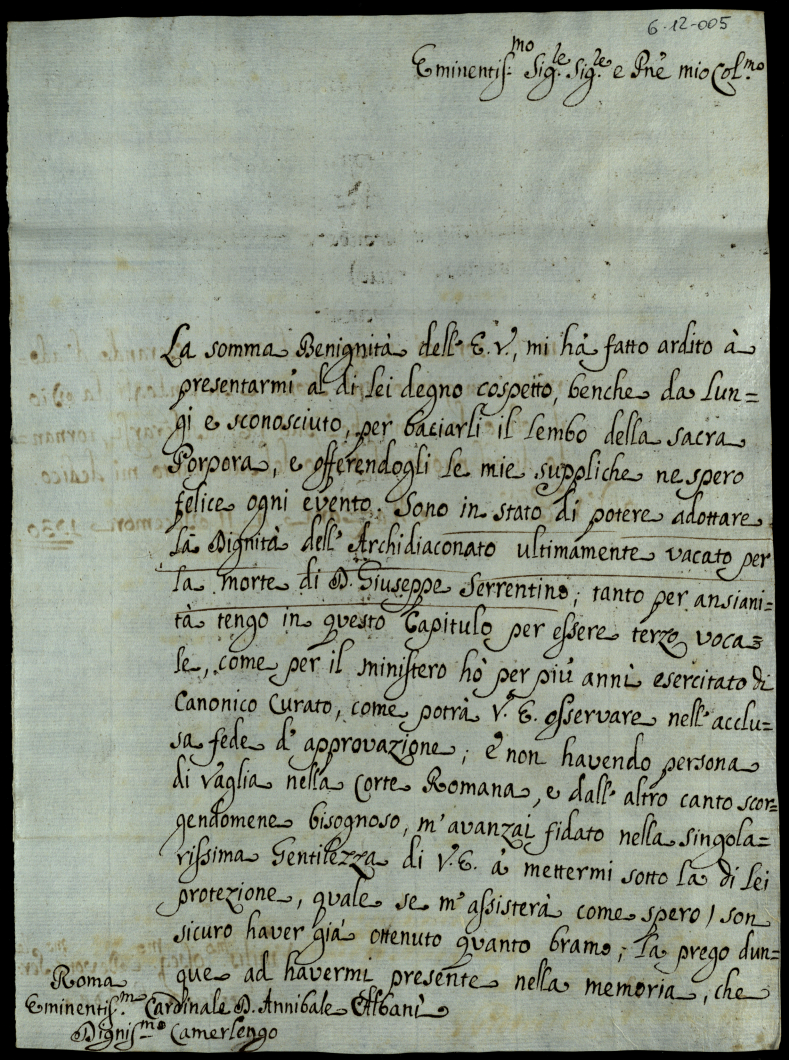 6-12-005
Eminentiss.mo Sig.re Sig.re e Pñe mio Col.mo
La somma Benignità dell' E. V., mi hà fatto ardito à
presentarmi al di lei degno cospetto, benche da lun=
gi e sconosciuto, per baciarli il lembo della sacra
Porpora, e offerendogli le mie suppliche ne spero
felice ogni evento. Sono in stato di potere adottare
la Dignità dell' Archidiaconato ultimamente vacato per
la morte di D. Giuseppe Serrentino; tanto per ansiani=
tà tengo in questo Capitulo per essere terzo voca=
le, come per il ministero hò per più anni esercitato di
Canonico Curato, come potrà V. E. osservare nell' acclu=
sa fede d' approvazione; e non havendo persona
di vaglia nella Corte Romana, e dall' altro canto scor=
gendomene bisognoso, m' avanzai fidato nella singola=
rissima Gentilezza di V. E. à mettermi sotto la di lei
protezione, quale se m' assisterà come spero) son
sicuro haver già ottenuto quanto bramo; la prego dun=
que ad havermi presente nella memoria, che
Roma
Eminentiss.mo Cardinale D. Annibale Albani
Dignis.mo Camerlengo